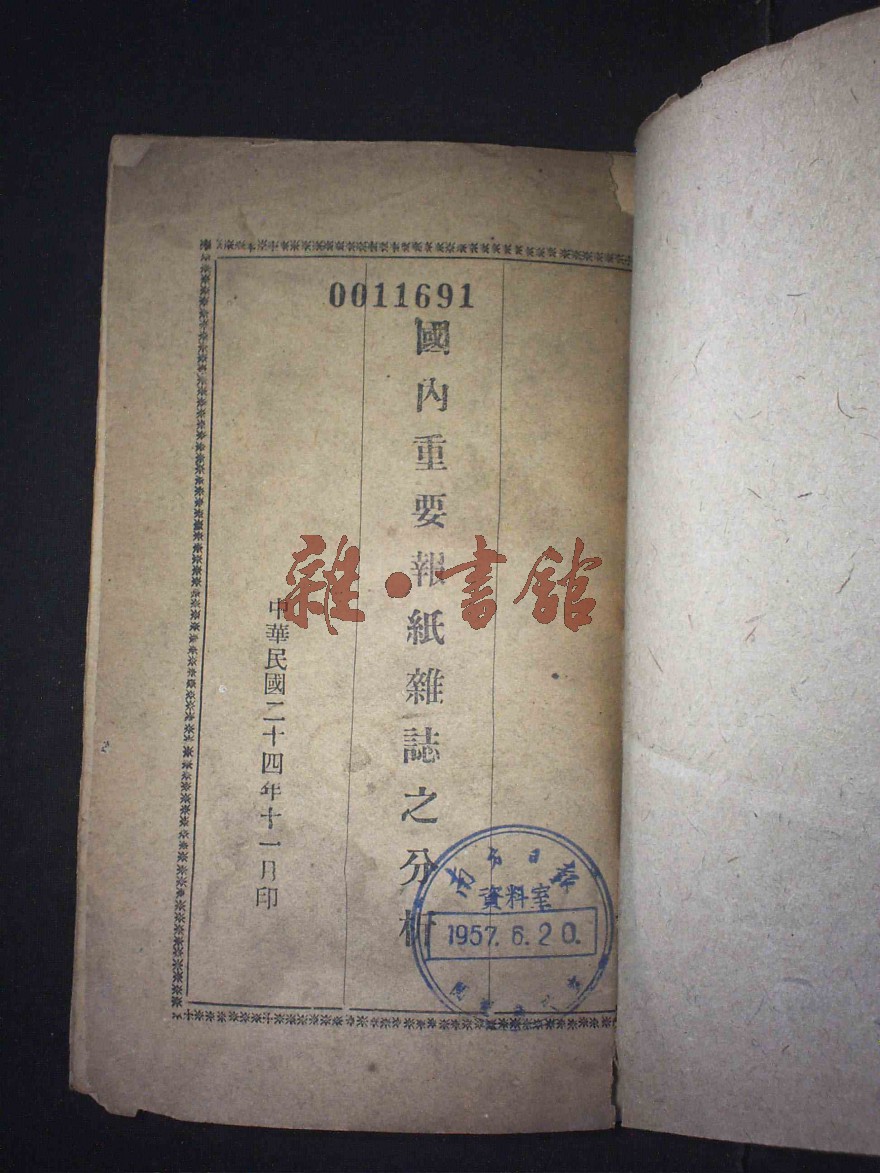 0011691
國內重要報紙雜誌之分析
中華民國二十四年十一月印
雜·書館
南方日報
資料室
1957.6.20.